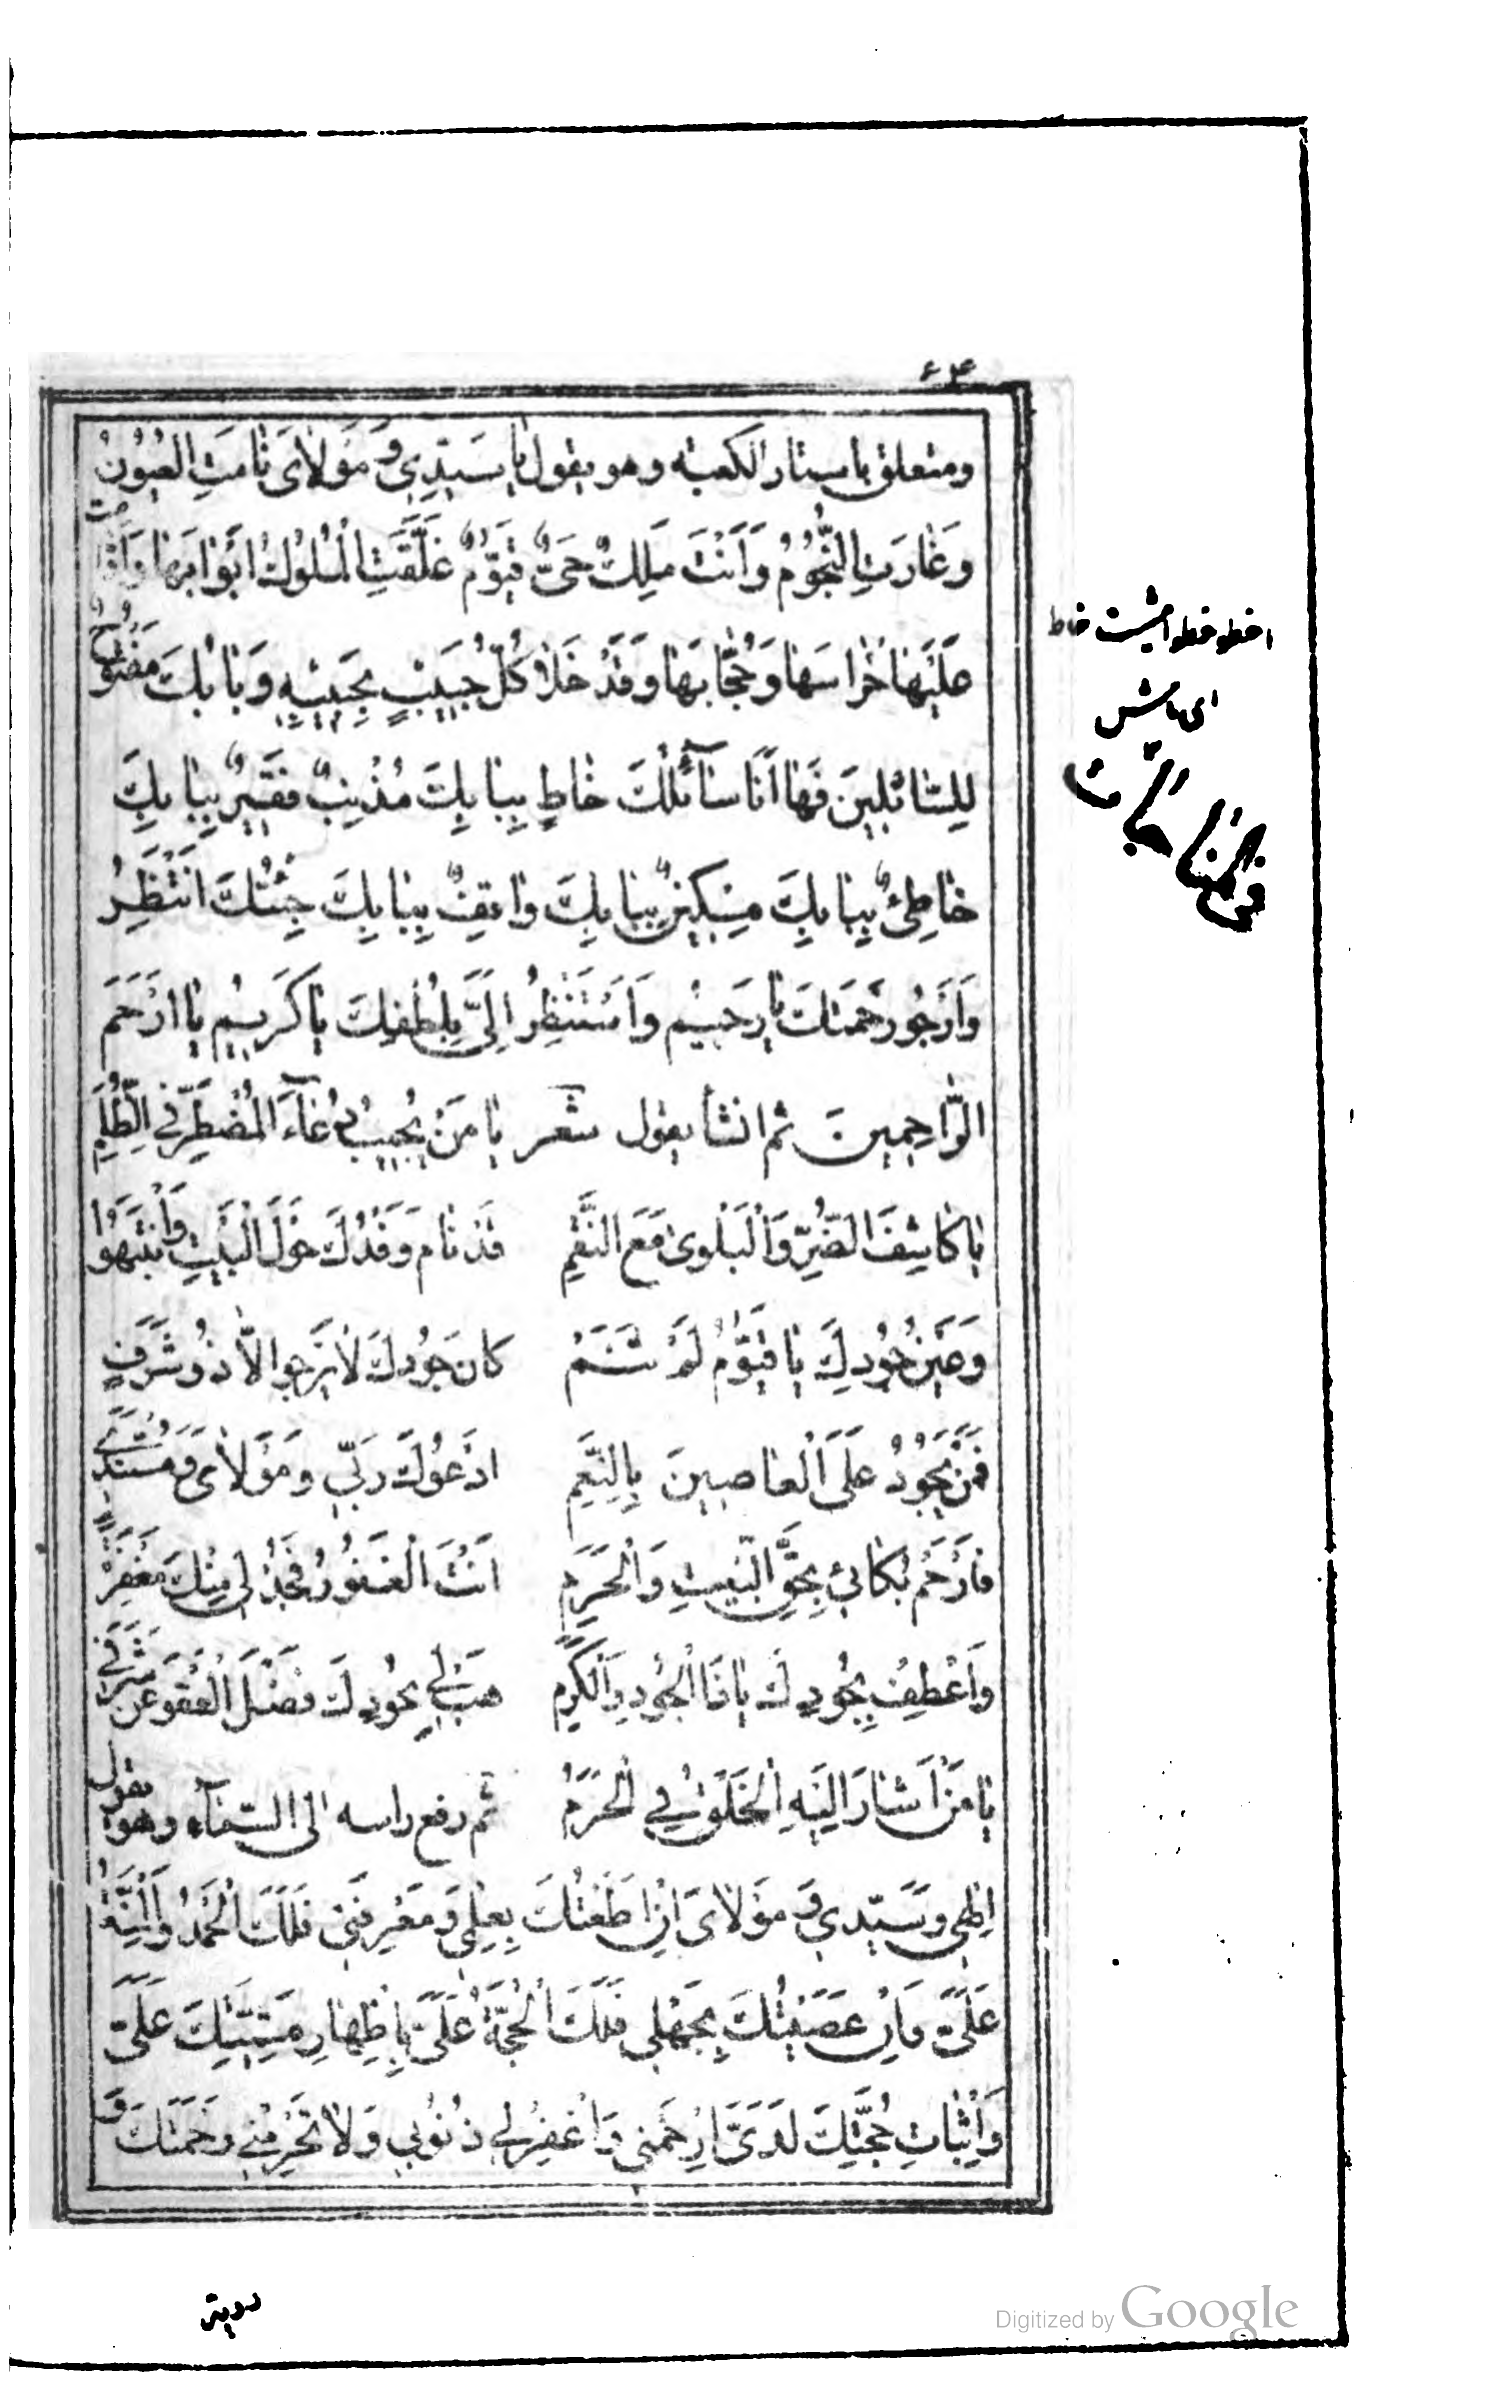 ۶۴
ومتعلق باستار الكعبه وهو يقول يا سَيِّدِي وَ مَوْلاىَ نامَتِ العُيُونُ
وَغارَتِ النُّجُومُ وَاَنْتَ مَلِكٌ حَىٌّ قَيُّومٌ غَلَّقَتِ الْمُلُوكُ اَبْوابَها وَاَقامَت
عَلَيْها حُرّاسَها وَحُجّابَها وَقَدْ خَلا كُلُّ حَبِيبٍ بِحَبِيبِهِ وَبابُكَ مَفْتُوحٌ
لِلسّائِلينَ فَها اَنَا سآئِلُكَ خاطٍ بِبابِكَ مُذْنِبٌ فَقيرٌ بِبابِكَ
خاطِئٌ بِبابِكَ مِسْكِينٌ بِبابِكَ واقِفٌ بِبابِكَ جِئْتُكَ اَنْتَظِرُ
وَاَرْجُو رَحْمَتَكَ يا رَحيمُ وَاَسْتَنْظِرُ اِلَىَّ بِلُطْفِكَ يا كَريمُ يا اَرْحَمَ
الرّاحِمينَ ثم انشأ يقول شعر يا مَنْ يُجيبُ دُعآءَ الْمُضْطَرِّ فِي الظُّلَمِ
يا كاشِفَ الضُّرِّ وَالْبَلْوى مَعَ النَّقَمِ قَدْ نامَ وَفْدُكَ حَوْلَ الْبَيْتِ وَانْتَبَهُوا
وَعَيْنُ جُودِكَ يا قَيُّومُ لَمْ تَنَمُ كانَ جَوُدكَ لا يَرْجوا الاّ ذُو شَرَفٍ
فَمَنْ يَجُودُ عَلَى الْعاصينَ بِالنِّعَمِ اَدْعُوكَ رَبّي وَمَوْلاىَ وَمُسْتَنَدي
فَارْحَمْ بُكائى بِحَقِّ الْبَيْتِ وَالْحَرَمِ اَنْتَ الْغَفُورُ فَجُدْ لى مِنْكَ مَغْفِرَةً
وَاعْطِفْ بِجُودِكَ يا ذَا الْجُودِ وَالْكَرَمِ هَبْ لى بِجُودِكَ فَضْلَ الْعَفْوِ عَنْ شَرَفى
يا مَنْ اَشارَ اِلَيْهِ الْخَلْقُ فِي الْحَرَمِ ثم رفع راسه الى السمآء وهو يقول
اِلهى وَسَيِّدى وَ مَوْلاىَ اِنْ اَطَعْتُكَ بِعِلْمى وَ مَعْرِفَتى فَلَكَ الْحَمْدُ وَالْمِنَّةُ
عَلَىَّ وَاِنْ عَصَيْتُكَ بِجَهْلى فَلَكَ الْحُجَّةُ عَلَىَّ بِاِظْهارِ مَنِيَّتِكَ عَلَىَّ
وَاِثْباتِ حُجَّتِكَ لَدَىَّ اِرْحَمْنى وَاغْفِرْ لى ذُنُوبى وَلا تَحْرِمْنى رَحْمَتَكَ وَ
اخطو خطو امشيت خاط
اى ماش
فى المناجات
Digitized by Google